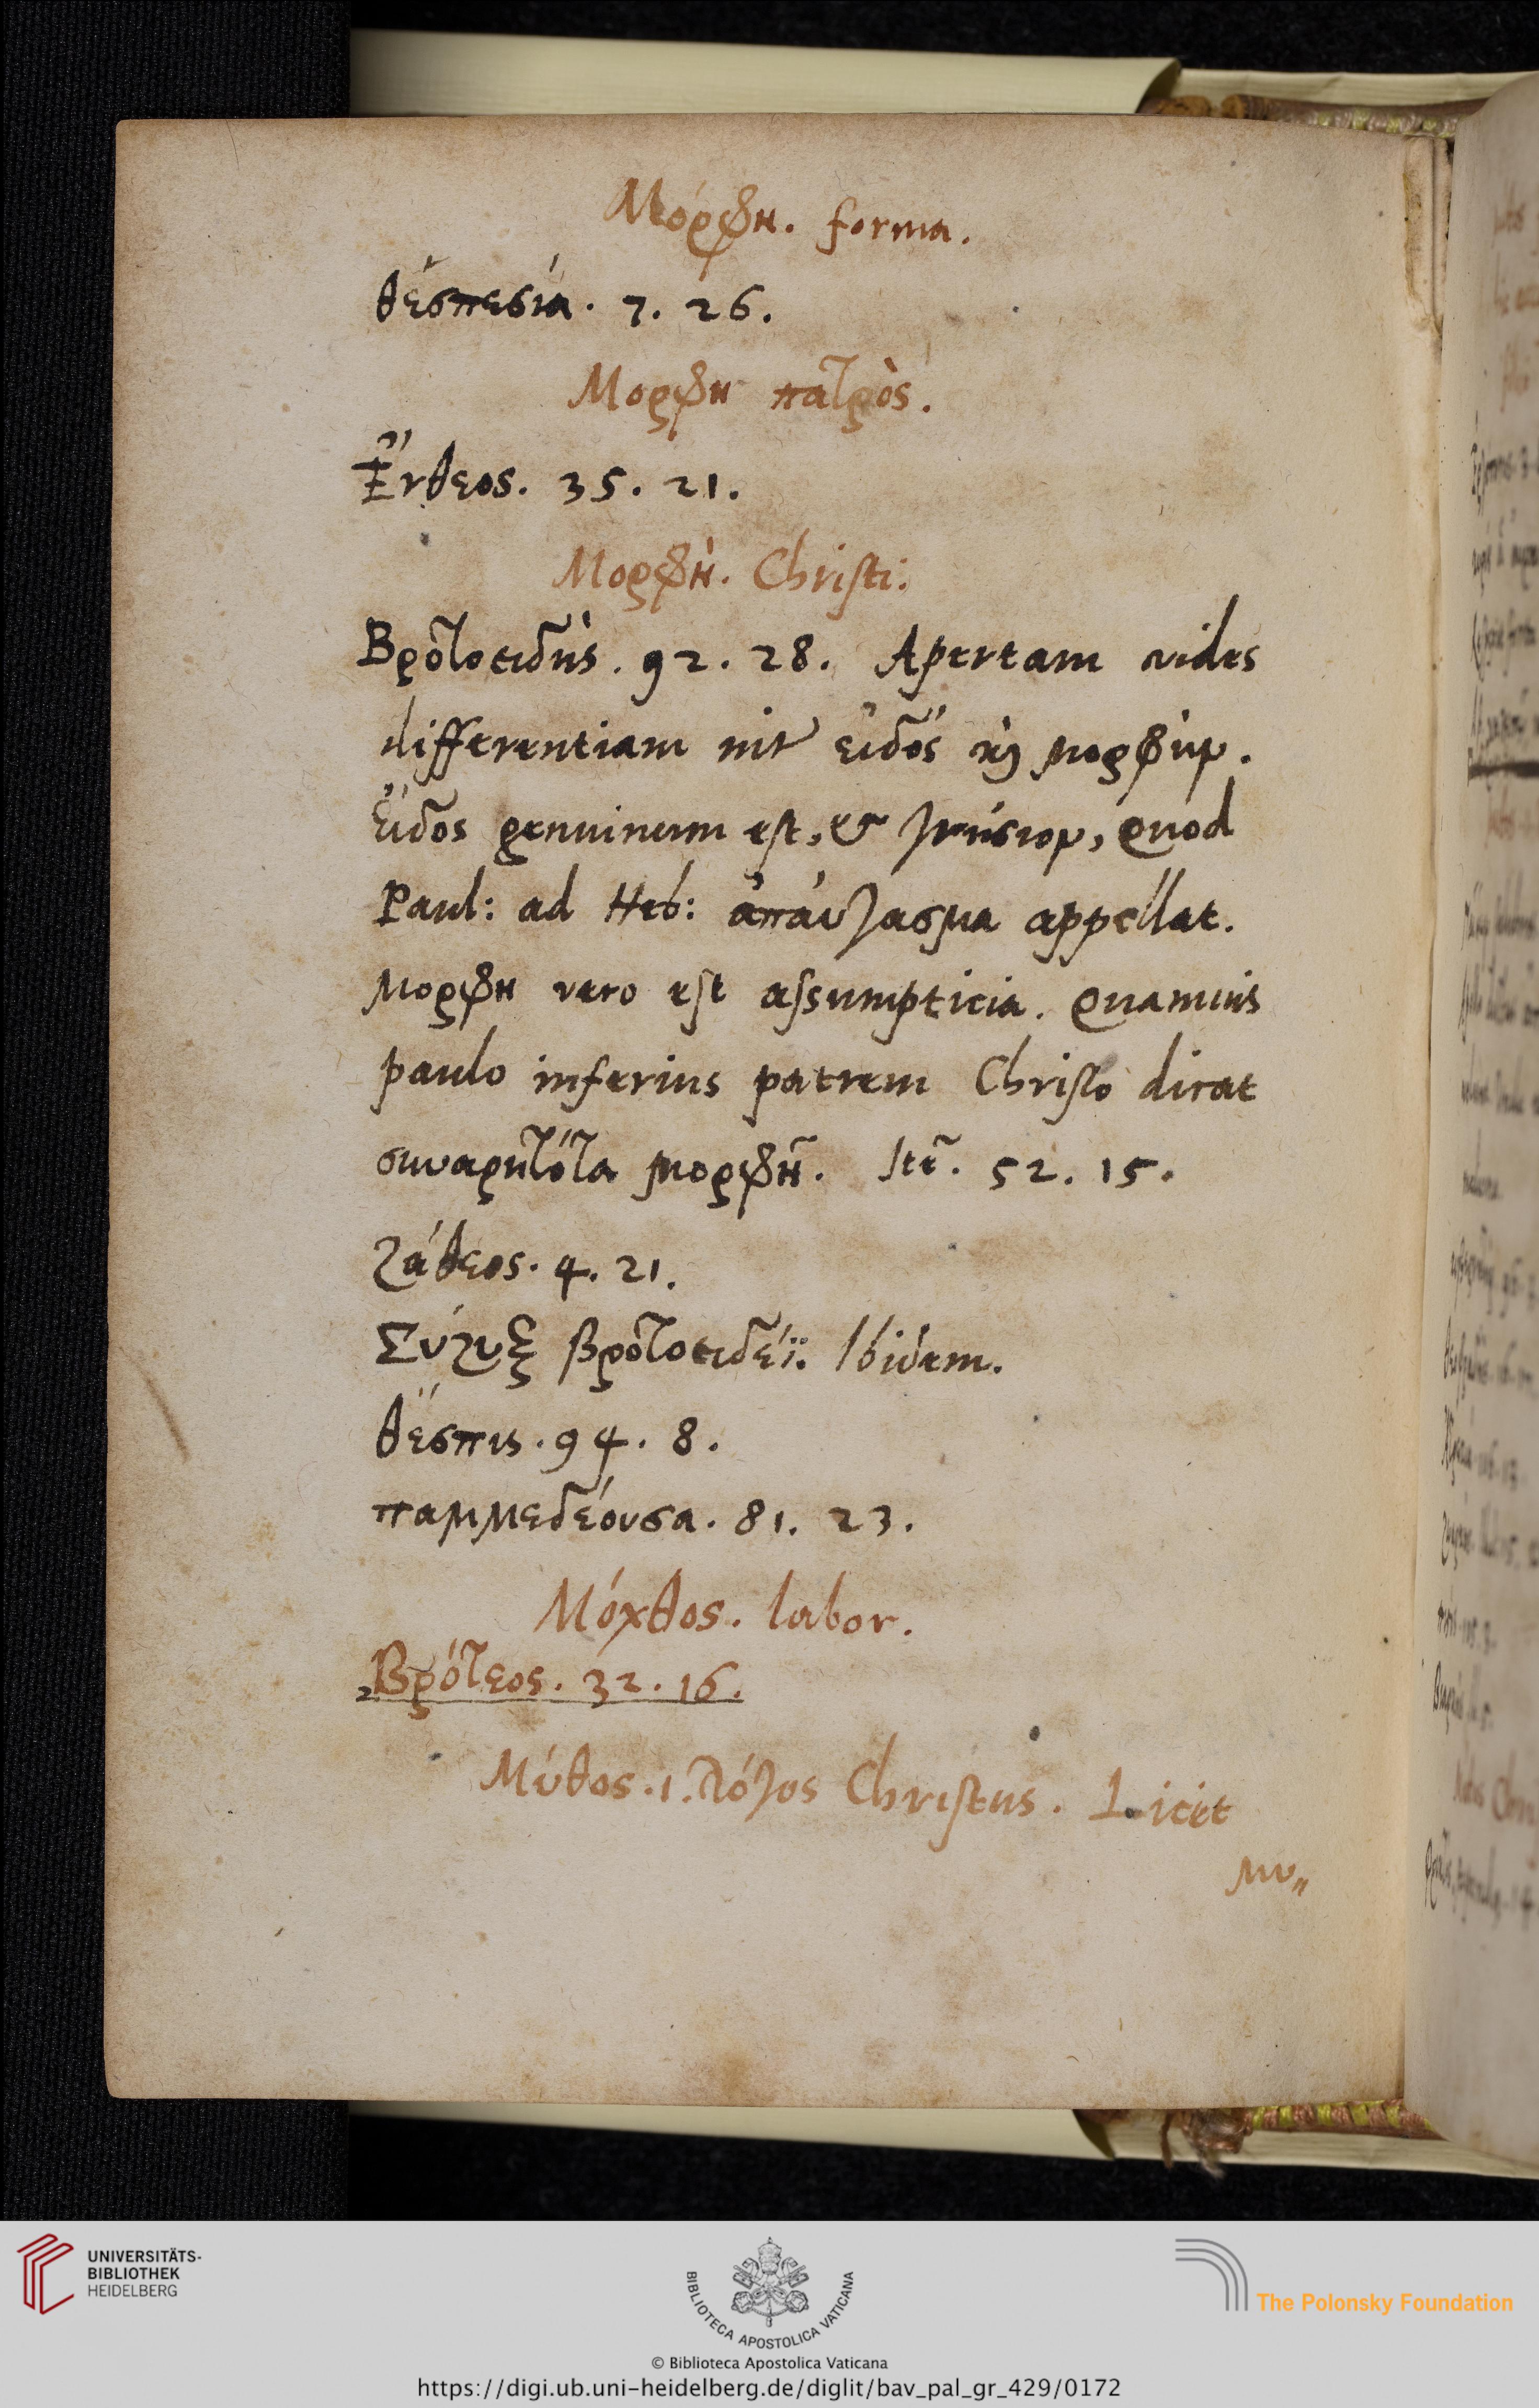 Μόρφη. forma.
θέσπεσία. 7. 26.
Μορφη πατρὸς.
Ἔνθεος. 35. 21.
Μορφὴ. Christi:
Βροτοειδὴς. 92. 28. Apertam vides
differentiam εἶδος καὶ μορφὴν.
Εἶδος genuinum est, & γνήσιον, quod
Paul: ad Heb: ἀπάυγασμα appellat.
μορφη vero est assumpticia. Quamuis
paulo inferius patrem Christo dicat
συναρητότα μορφῆ. Ite᷉. 52. 15.
Ζάθεος. 4. 21.
Σύζυξ βροτοειδέϊ. Ibidem.
θέσπις. 94. 8.
παμμεδέουσα. 81. 23.
Μόχθος. labor.
Βρότεος. 32. 16.
Μύθος. ι. λόγος Christus. Licet
μυ〃
UNIVERSITÄTS-
BIBLIOTHEK
HEIDELBERG
BIBLIOTECA APOSTOLICA VATICANA
The Polonsky Foundation
© Biblioteca Apostolica Vaticana
https://digi.ub.uni-heidelberg.de/diglit/bav_pal_gr_429/0172